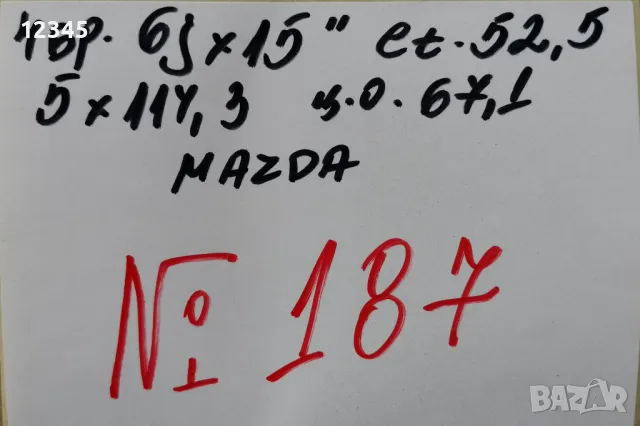 12345
4 бр. 6j x 15" et. 52,5
5 x 114,3 ц.о. 67,1
MAZDA
№ 187
BAZAR